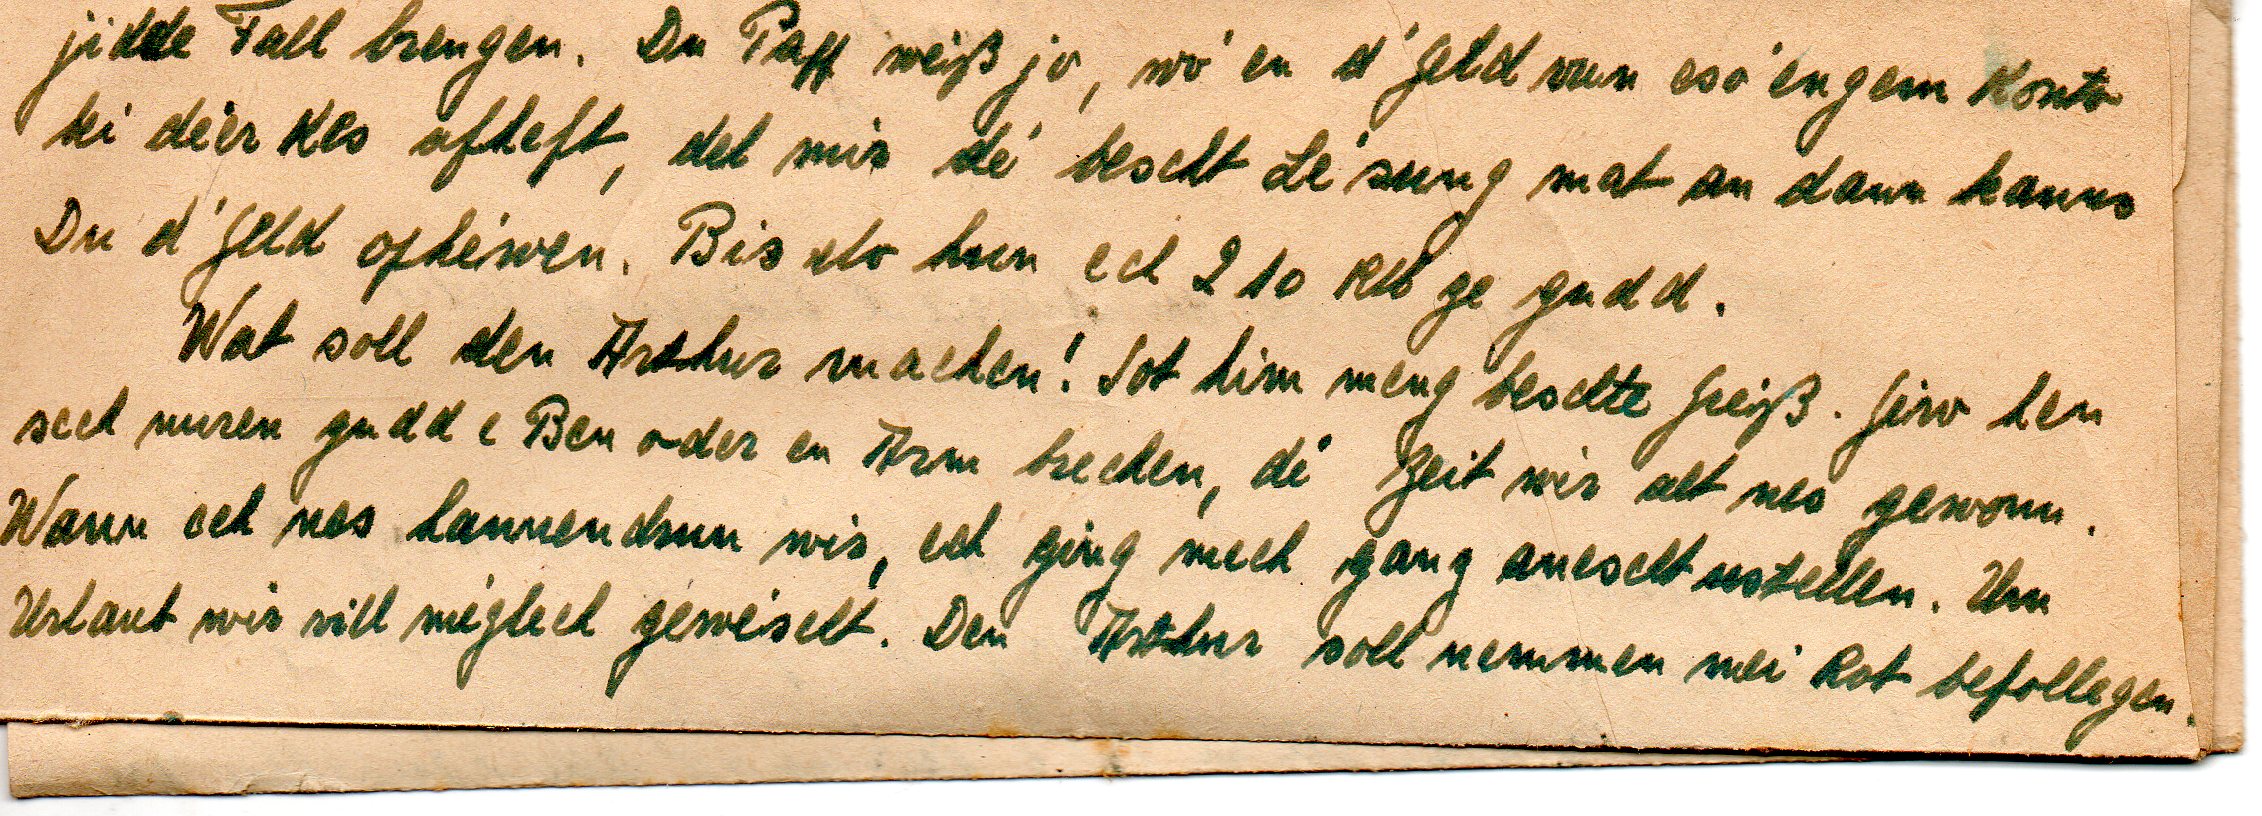 jidde Fall brengen. Du Paff weiß jo, wó en d'Geld vun esó engem Konto
hi déer Kes ofheft, del mir dé bescht Lé'sung mat an dann kanns
Du d'Geld ophéwen. Bis elo hun ech 210 RM ze gudd.
Wat soll den Arthur machen! Sot him meng beschte Greiß. Géiw hen
sech nuren gudd e Ben oder en Arm brechen, dé Zeit wir alt nes gewonn.
Wann ech nes hannendrun wir, ech ging mech gang anescht ustellen. Um
Urlaub wir vill méglech gewéischt. Den Arthur soll nemmen mei Rot befollegen.